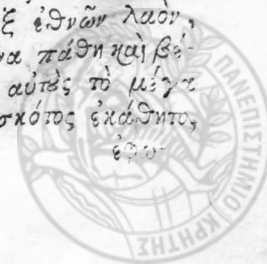 ξ ἐθνῶν λαὸν,
να πάθη καὶ βέ-
αὐτὲς τὸ μέγα
σκότος ἐκάθητο,
ἐφω-
ΠΑΝΕΠΙΣΤΗΜΙΟ ΚΡΗΤΗΣ